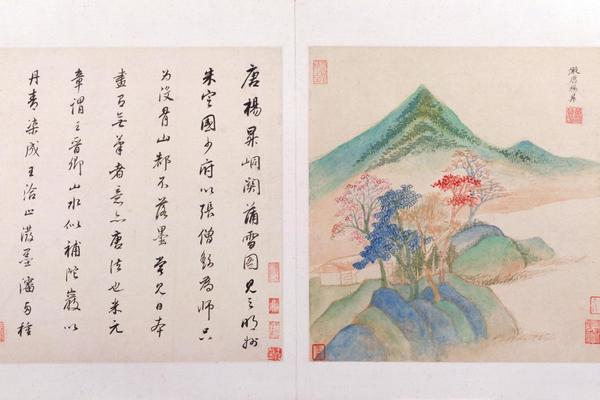 倣唐楊昇
唐楊昇峒關蒲雪圖見之明州
朱定國少府以張僧繇為師只
為没骨山都不落墨曾見日本
畫有無筆者意亦唐法也米元
章謂王晉卿山水似補陀巖以
丹青染成王洽止潑墨瀋與種